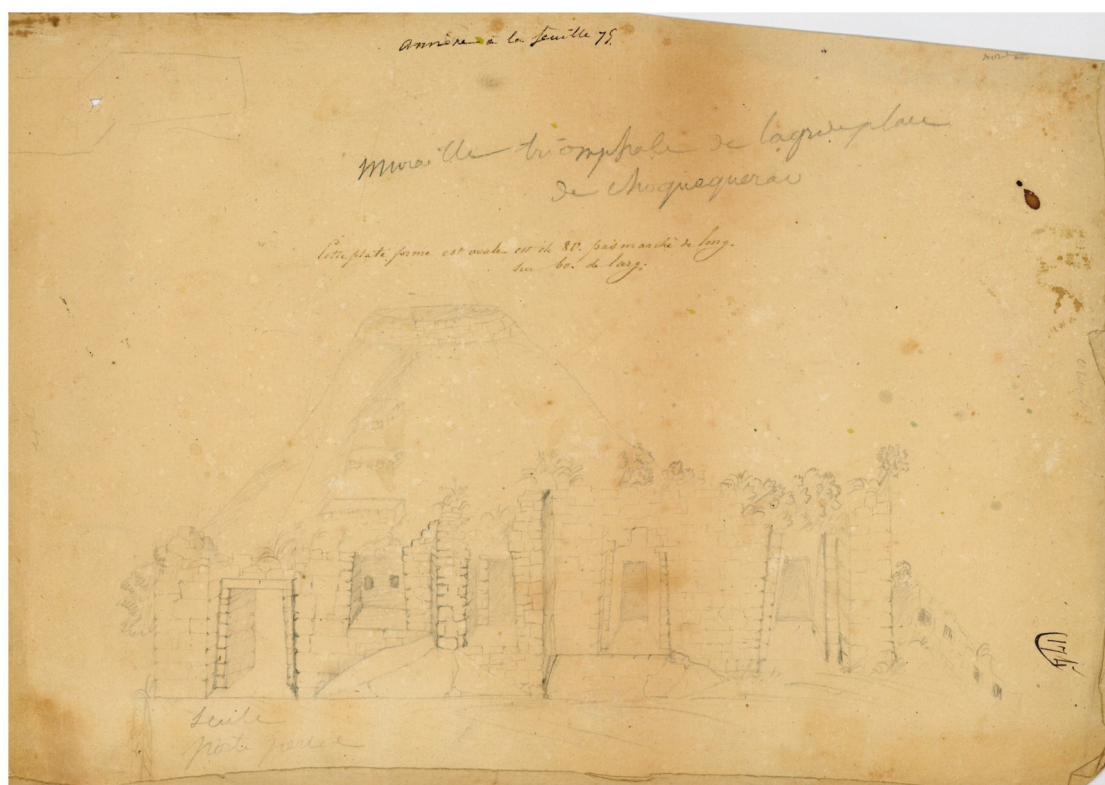 annexe à la feuille 75.
Muraille triomphale de la grde place
de choquequerao
Cette plate forme est ovale est de 80. pas marché de long.
sur 60. de larg.
Seule
porte percée